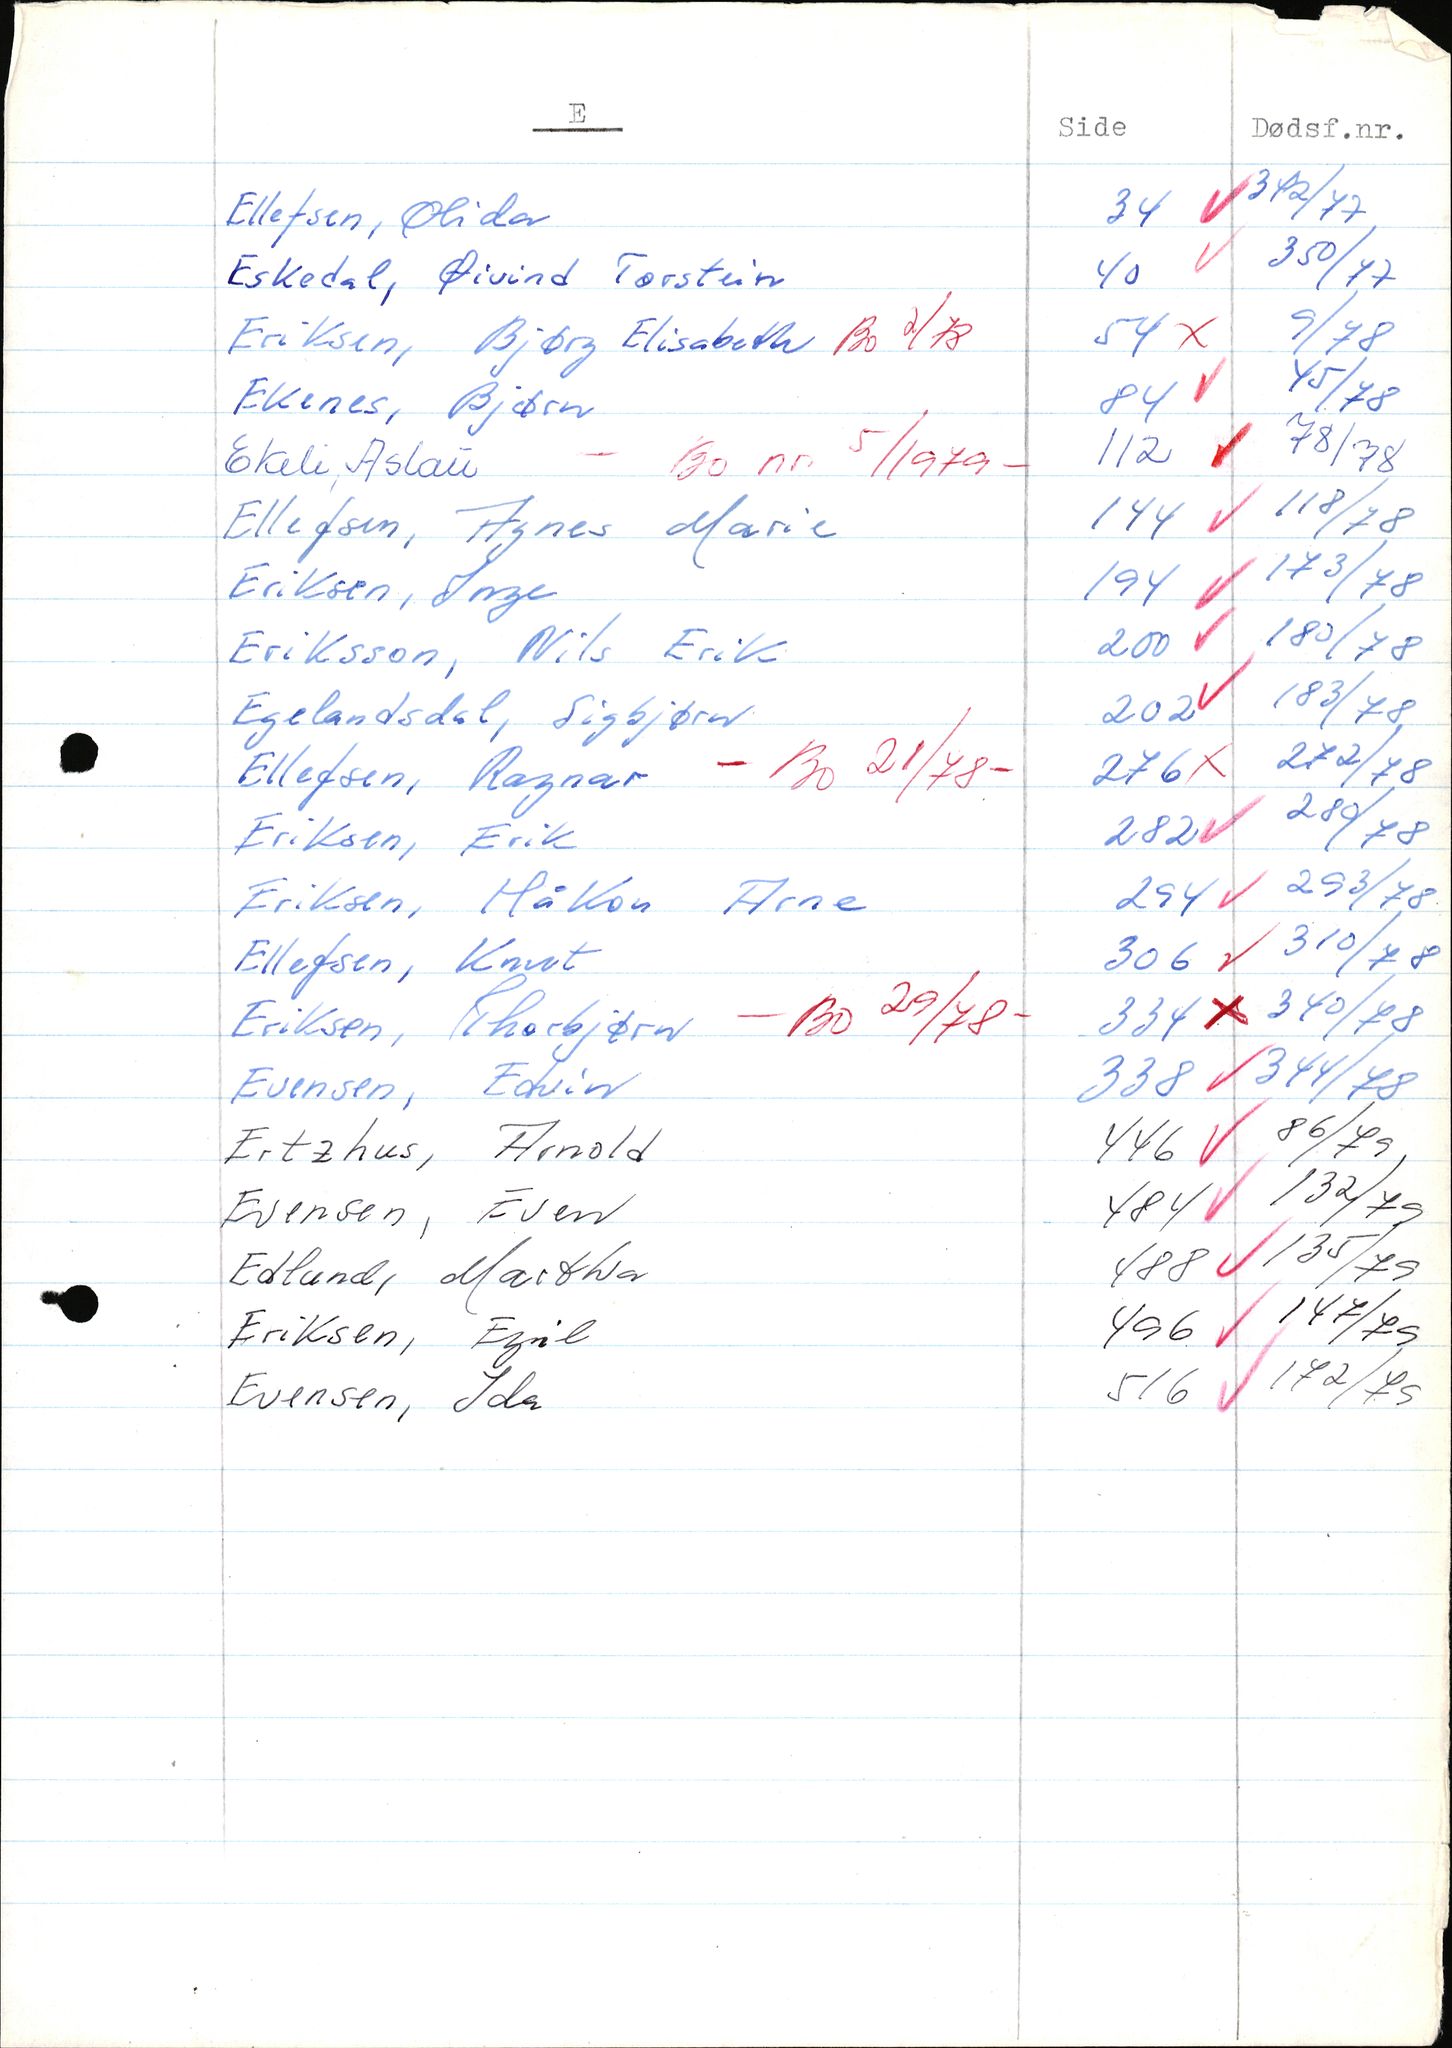 E Side Dødsf.nr.
Ellefsen, Olida 34 ✓ 342/77
Eskedal, Øivind Torstein 40 ✓ 350/77
Eriksen, Bjørg Elisabeth Bo 2/78 54 x 9/78
Ekenes, Bjørn 84 ✓ 45/78
Ekeli, Aslaŭ – Bo nr. 5/1979 – 112 ✓ 78/78
Ellefsen, Agnes Marie 144 ✓ 118/78
Eriksen, Inge 194 ✓ 173/78
Eriksson, Nils Erik 200 ✓ 180/78
Egelandsdal, Sigbjørn 202 ✓ 183/78
Ellefsen, Ragnar – Bo 21/78 – 276 x 272/78
Eriksen, Erik 282 ✓ 280/78
Eriksen, Håkon Arne 294 ✓ 293/78
Ellefsen, Knut 306 ✓ 310/78
Eriksen, Thorbjørn – Bo 29/78 – 334 x 340/78
Evensen, Edvin 338 ✓ 344/78
Ertzhus, Arnold 446 ✓ 86/79
Evensen, Even 484 ✓ 132/79
Edlund, Martha 488 ✓ 135/79
Eriksen, Egil 496 ✓ 147/79
Evensen, Ida 516 ✓ 172/79